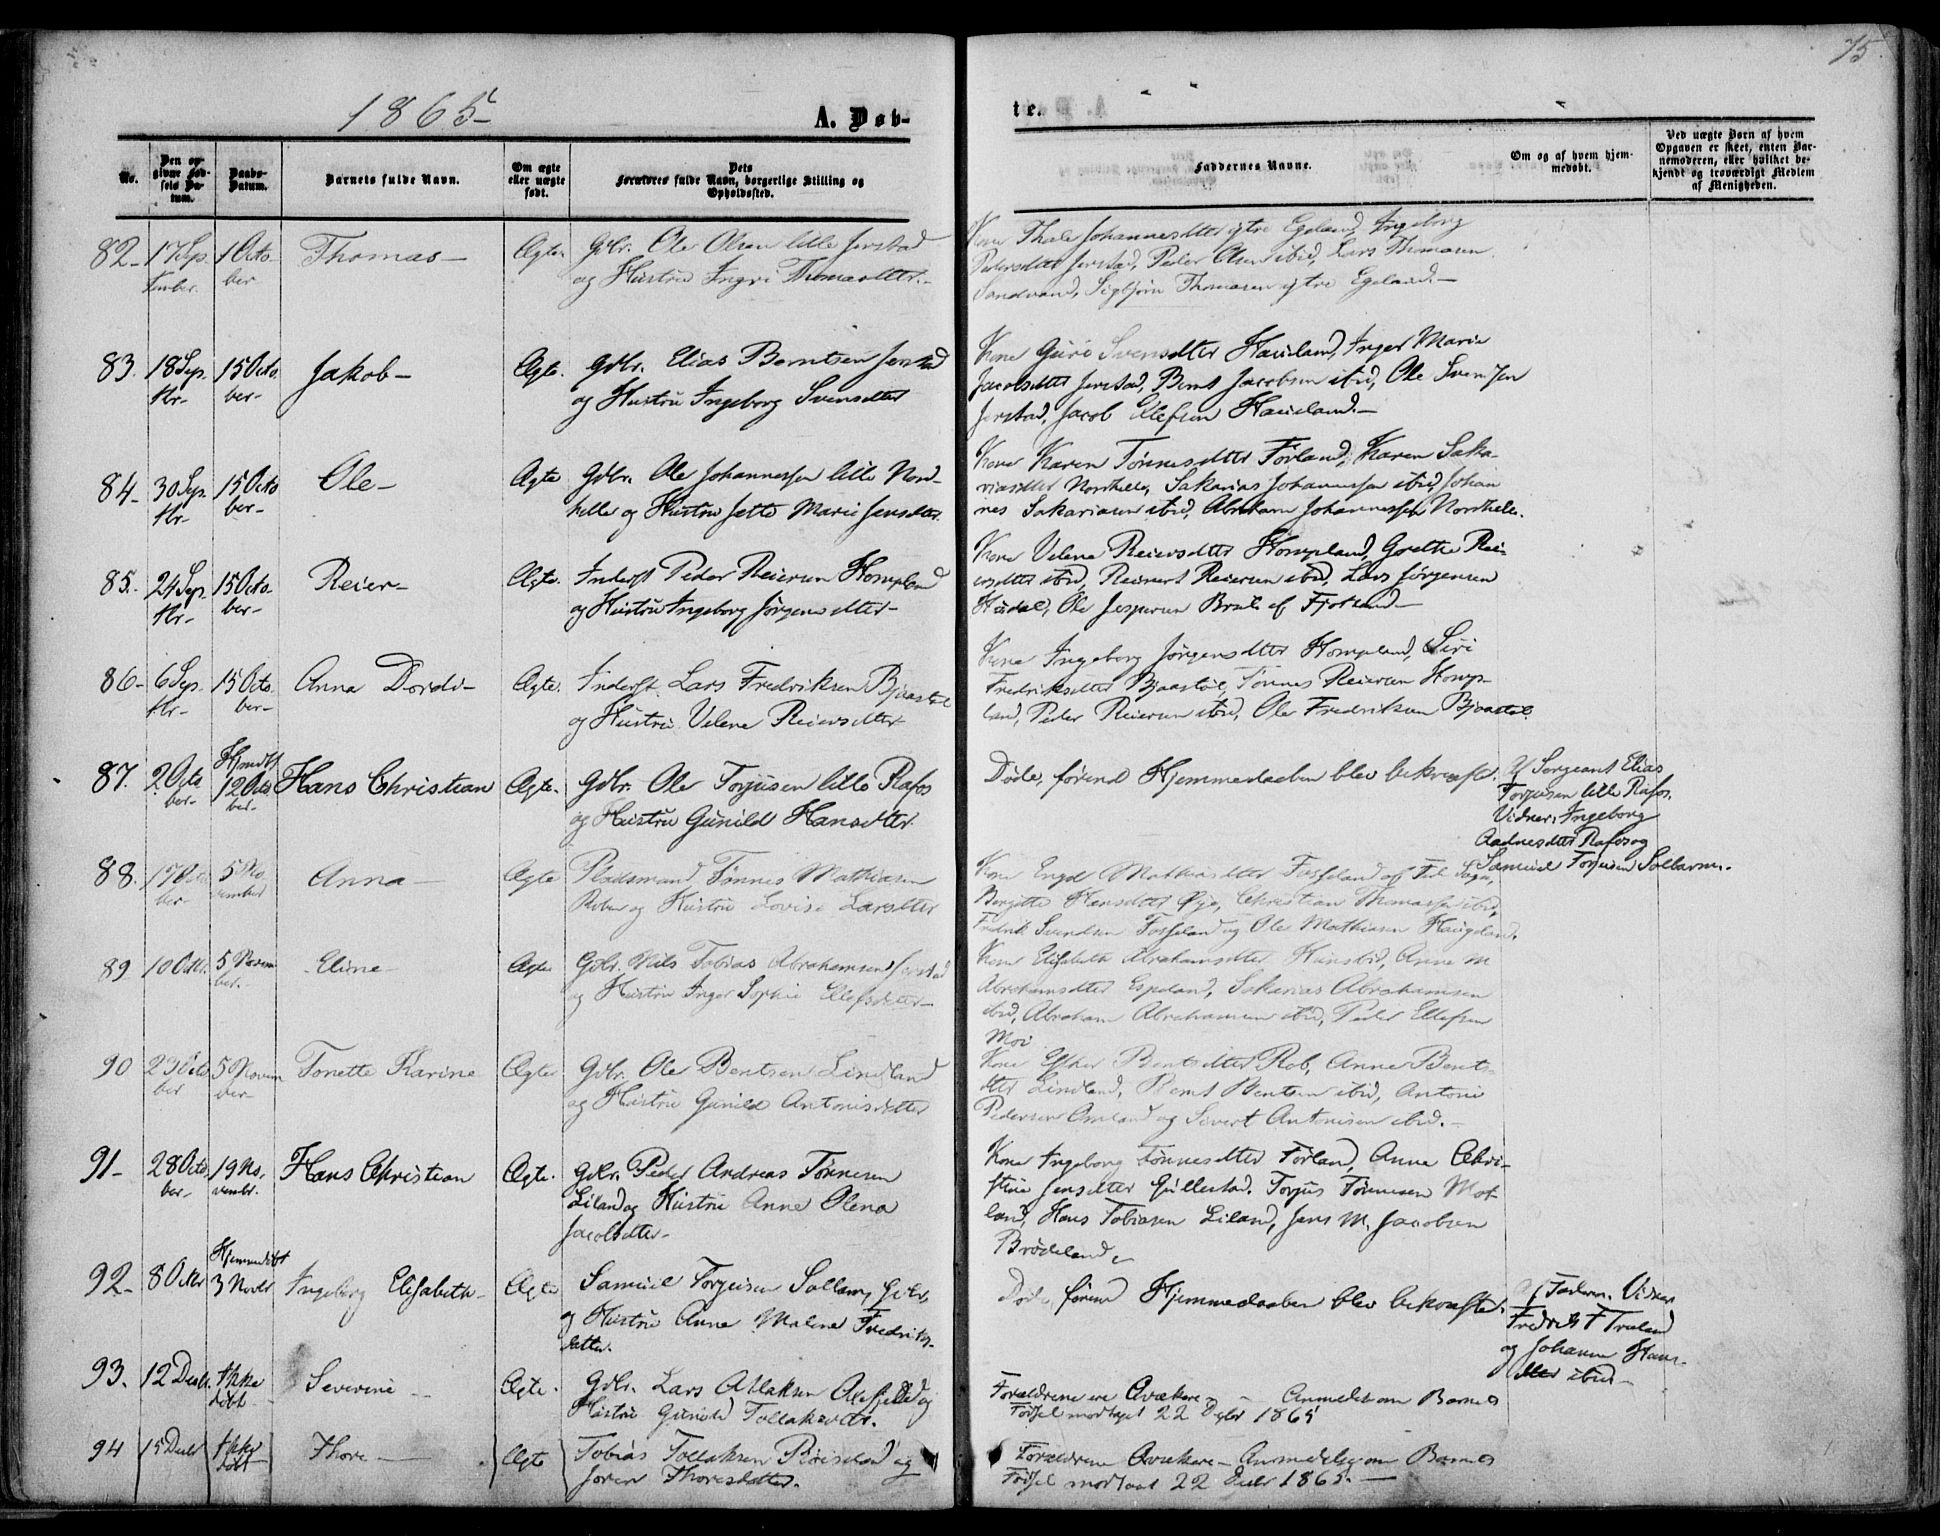 75
1865-
A. Døb-
te.
No.
Den opgivne Fødsels Datum.
Daabs-Datum.
Barnets fulde Navn.
Om ægte eller uægte født.
Dets Forældres fulde Navn, borgerlige Stilling og Opholdssted.
Faddernes Navne.
Om og af hvem hjemmedøbt.
Ved uægte Børn af hvem Opgaven er skeet, enten Barnemoderen, eller hvilket bekjendt og troværdigt Medlem af Menigheden.
82- 17 Sep- 1 Octo- Thomas- Ægte- Gdbr. Ole Olsen lille Jerstad
tember. ber og Hustru Ingri Thomasdtter.-
Kone Johannesdtter ytre Egeland, Ingeborg
Pedersdtter Jerstad, Peder Olsen ibid, Lars Thomasen
Sandvand, Sigbjørn Thomasen ytre Egeland.-
83. 18 Sep- 15 Octo- Jakob- Ægte. Gdbr. Elias Berntsen Jerstad
tbr- ber- og Hustru Ingeborg Svensdtter
Kone Guro Svensdtter Haueland, Inger Marie
Jacobsdtter Jerstad, Bernt Jacobsen ibid, Ole Svensen
Jerstad, Jacob Ellefsen Haueland.-
84- 30 Sep- 15 Octo Ole- Ægte Gdbr. Ole Johannessen lille Nord-
tbr- ber- helle og Hustru Jette Marie Jensdtter.
Kone Karen Tønnesdtter Førland, Karen Saka-
riasdtter Nordhelle, Sakarias Johannessen ibid, Johan
nes Sakariasen ibid, Abraham Johannessen Nordhelle.
85. 24 Sep- 15 Octo- Reier- Ægte. Inderst Peder Reiersen Hompland
tbr- ber- og Hustru Ingeborg Jørgensdtter-
Kone Velene Reiersdtter Hompland, Grethe Rei-
ersdtter ibid, Reinert Reiersen ibid, Lars Jørgensen
Ole Jespersen af Fjotland-
86- 6 Sep- 15 Octo- Anna Dordi- Ægte. Inderst Lars Fredriksen Bjaastøl
tbr- ber- og Hustru Velene Reiersdtter
Kone Ingeborg Jørgensdtter Hompland, Siri
Fredriksdtter Bjaastøl, Tønnes Reiersen Homp-
land, Peder Reiersen ibid, Ole Fredriksen Bjaastøl.
87. 2 Octo Hjmdbt 12 Octo Hans Christian Ægte. Gdbr. Ole Torjusen lille Rafos
ber- ber- og Hustru Gunild Hansdtter.
Døde, førend Hjemmedaaben blev bekræftet.
Af Sergeant Elias
Torjusen lille Rafos.
Vidner: Ingeborg
Aadnesdtter Rafos og
Samuel Torjusen Sollarm.
88. 17 Octo 5 No- Anna- Ægte Pladsmand Tønnes Mathiasen
ber- vember og Hustru Lovise Larsdtter
Kone Engel Mathiasdtter Fosseland af Sogn,
Bergitte Hansdtter Øye, Christian Thomassen ibid,
Fredrik Svendsen Fosseland og Ole Mathiasen Haugeland.
89 10 Octbr. 5 Novem Eline- Ægte Gdbr. Nils Tobias Abrahamsen Jerstad
ber- og Hustru Inger Sophie Ellefsdtter-
Kone Elisabeth Abrahamsdtter Hunsbed, Anne M
Abrahamsdtter Espeland, Sakarias Abrahamsen
ibid, Abraham Abrahamsen ibid, Peder Ellefsen
Moi
90 23 Octo 5 Novem Tonette Karine Ægte Gdbr. Ole Bentsen Lindland
ber ber- og Hustru Gunild Antonisdtter
Kone Esther Bentsdtter Rob, Anne Bents-
dtter Lindland, Bernt Bentsen ibid, Antoni
Pedersen Omland og Sivert Antonisen ibid.-
91- 28 Octo- 19 No- Hans Christian Ægte. Gdbr. Peder Andreas Tønnesen
ber- vembr. Liland og Hustru Anne Olena
Jacobsdtter-
Kone Ingeborg Tønnesdtter Førland, Anne Chri-
stine Jensdtter Gullestad. Torjus Tønnesen Mot-
land, Hans Tobiasen Liland, Jens M. Jacobsen
Brødeland.
92- 8 Octbr Hjemmedøbt 3 Novbr Ingeborg Elisabeth- Ægte Samuel Torjusen Sollarm, Gdbr,
og Hustru Anne Malene Fredriks-
datter.
Døde, førend Hjemmedaaben blev bekræftet.
Af Faderen. Vidner
Fredrik F Treland
og Johanne Hans-
dtter ibid-
93. 12 Decbr. Ikke døbt Severine- Ægte. Gdbr. Lars Atlaksen Aasfjeld og
Hustru Gunild Tollaksdtr.
Forældrene ere Qvækere- Anmeldelse om Barnets
Fødsel modtaget 22 Decbr 1865
94 15 Decbr Ikke døbt Thore- Ægte Tobias Tollaksen Røiseland og
Joren Thoresdatter.
Forældrene Qvækere- Anmeldelse om Barnets
Fødsel modtaget 22 Decbr 1865.-